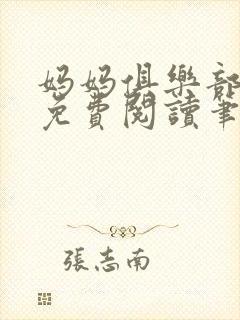 媽媽俱樂部
免費閱讀筆
張志南